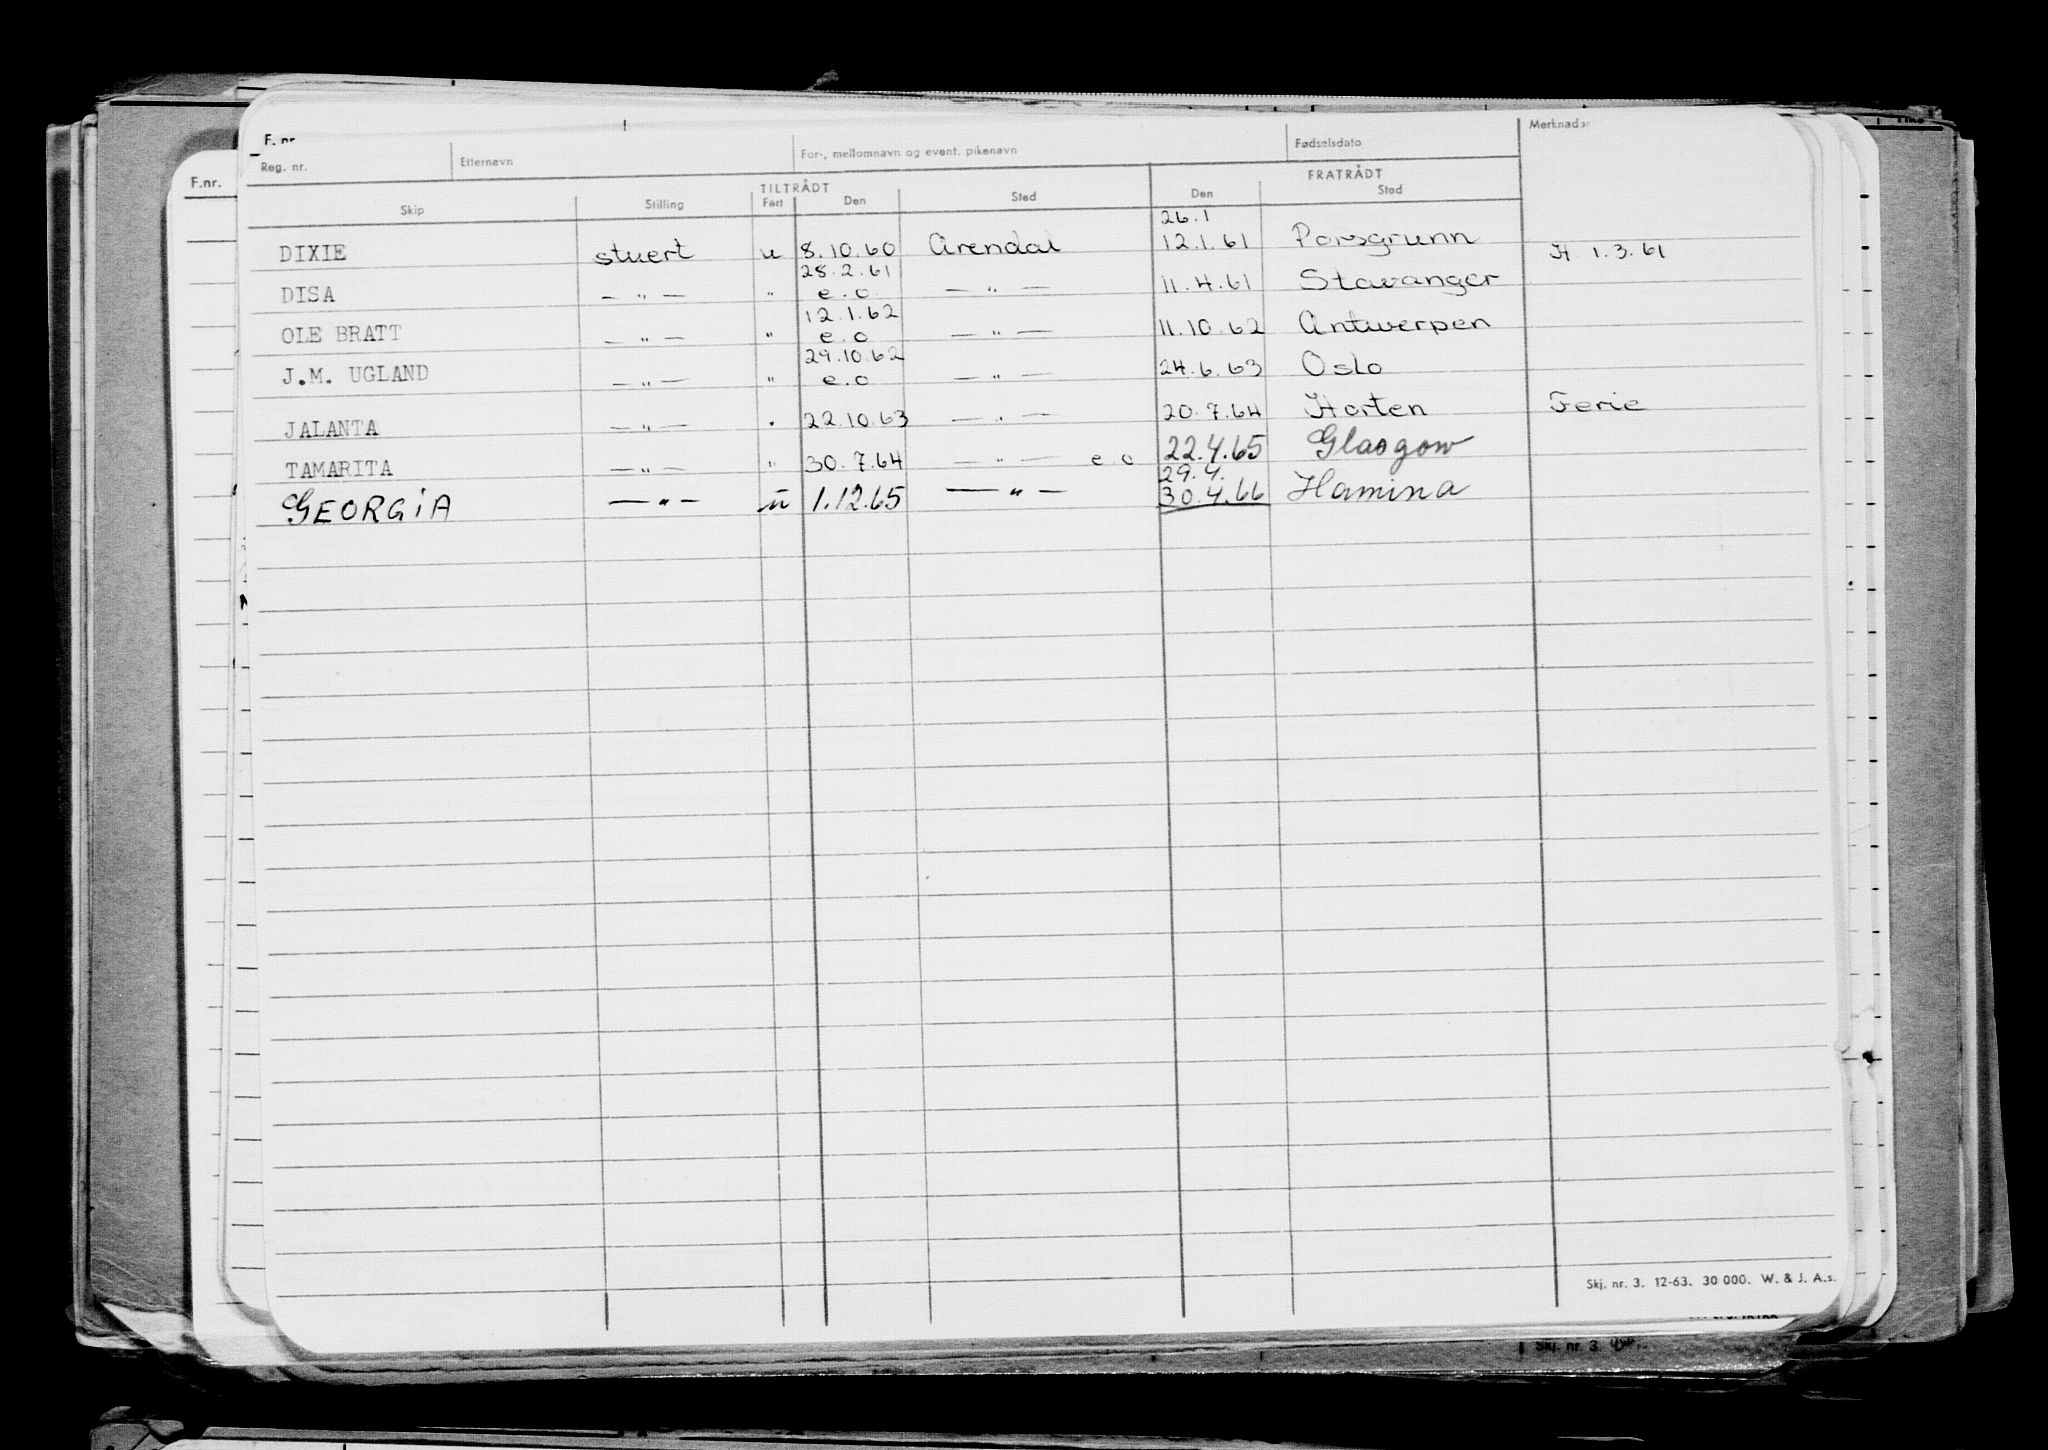 F. nr.
F.nr.
Reg. nr. Etternavn For-, mellomnavn og event. pikenavn Fødselsdato Merknader
TILTRÅDT FRATRÅDT
Skip Stilling Fart Den Sted Den Sted
26.1
DIXIE stuert u 8.10.60 Arendal 12.1.61 Porsgrunn H 1.3.61
28.2.61
DISA — " — " e.o — " — 11.4.61 Stavanger
12.1.62
OLE BRATT — " — " e.o — " — 11.10.62 Antwerpen
29.10.62
J.M. UGLAND — " — " e.o — " — 24.6.63 Oslo
JALANTA — " — " 22.10.63 — " — 20.7.64 Horten Ferie
TAMARITA — " — " 30.7.64 — " — e o 22.4.65 Glasgow
29.4.
GEORGiA — " — u 1.12.65 — " — 30.4.66 Hamina
Skj. nr. 3. 12-63. 30 000. W. & J. A.s.
Skj. nr. 3.